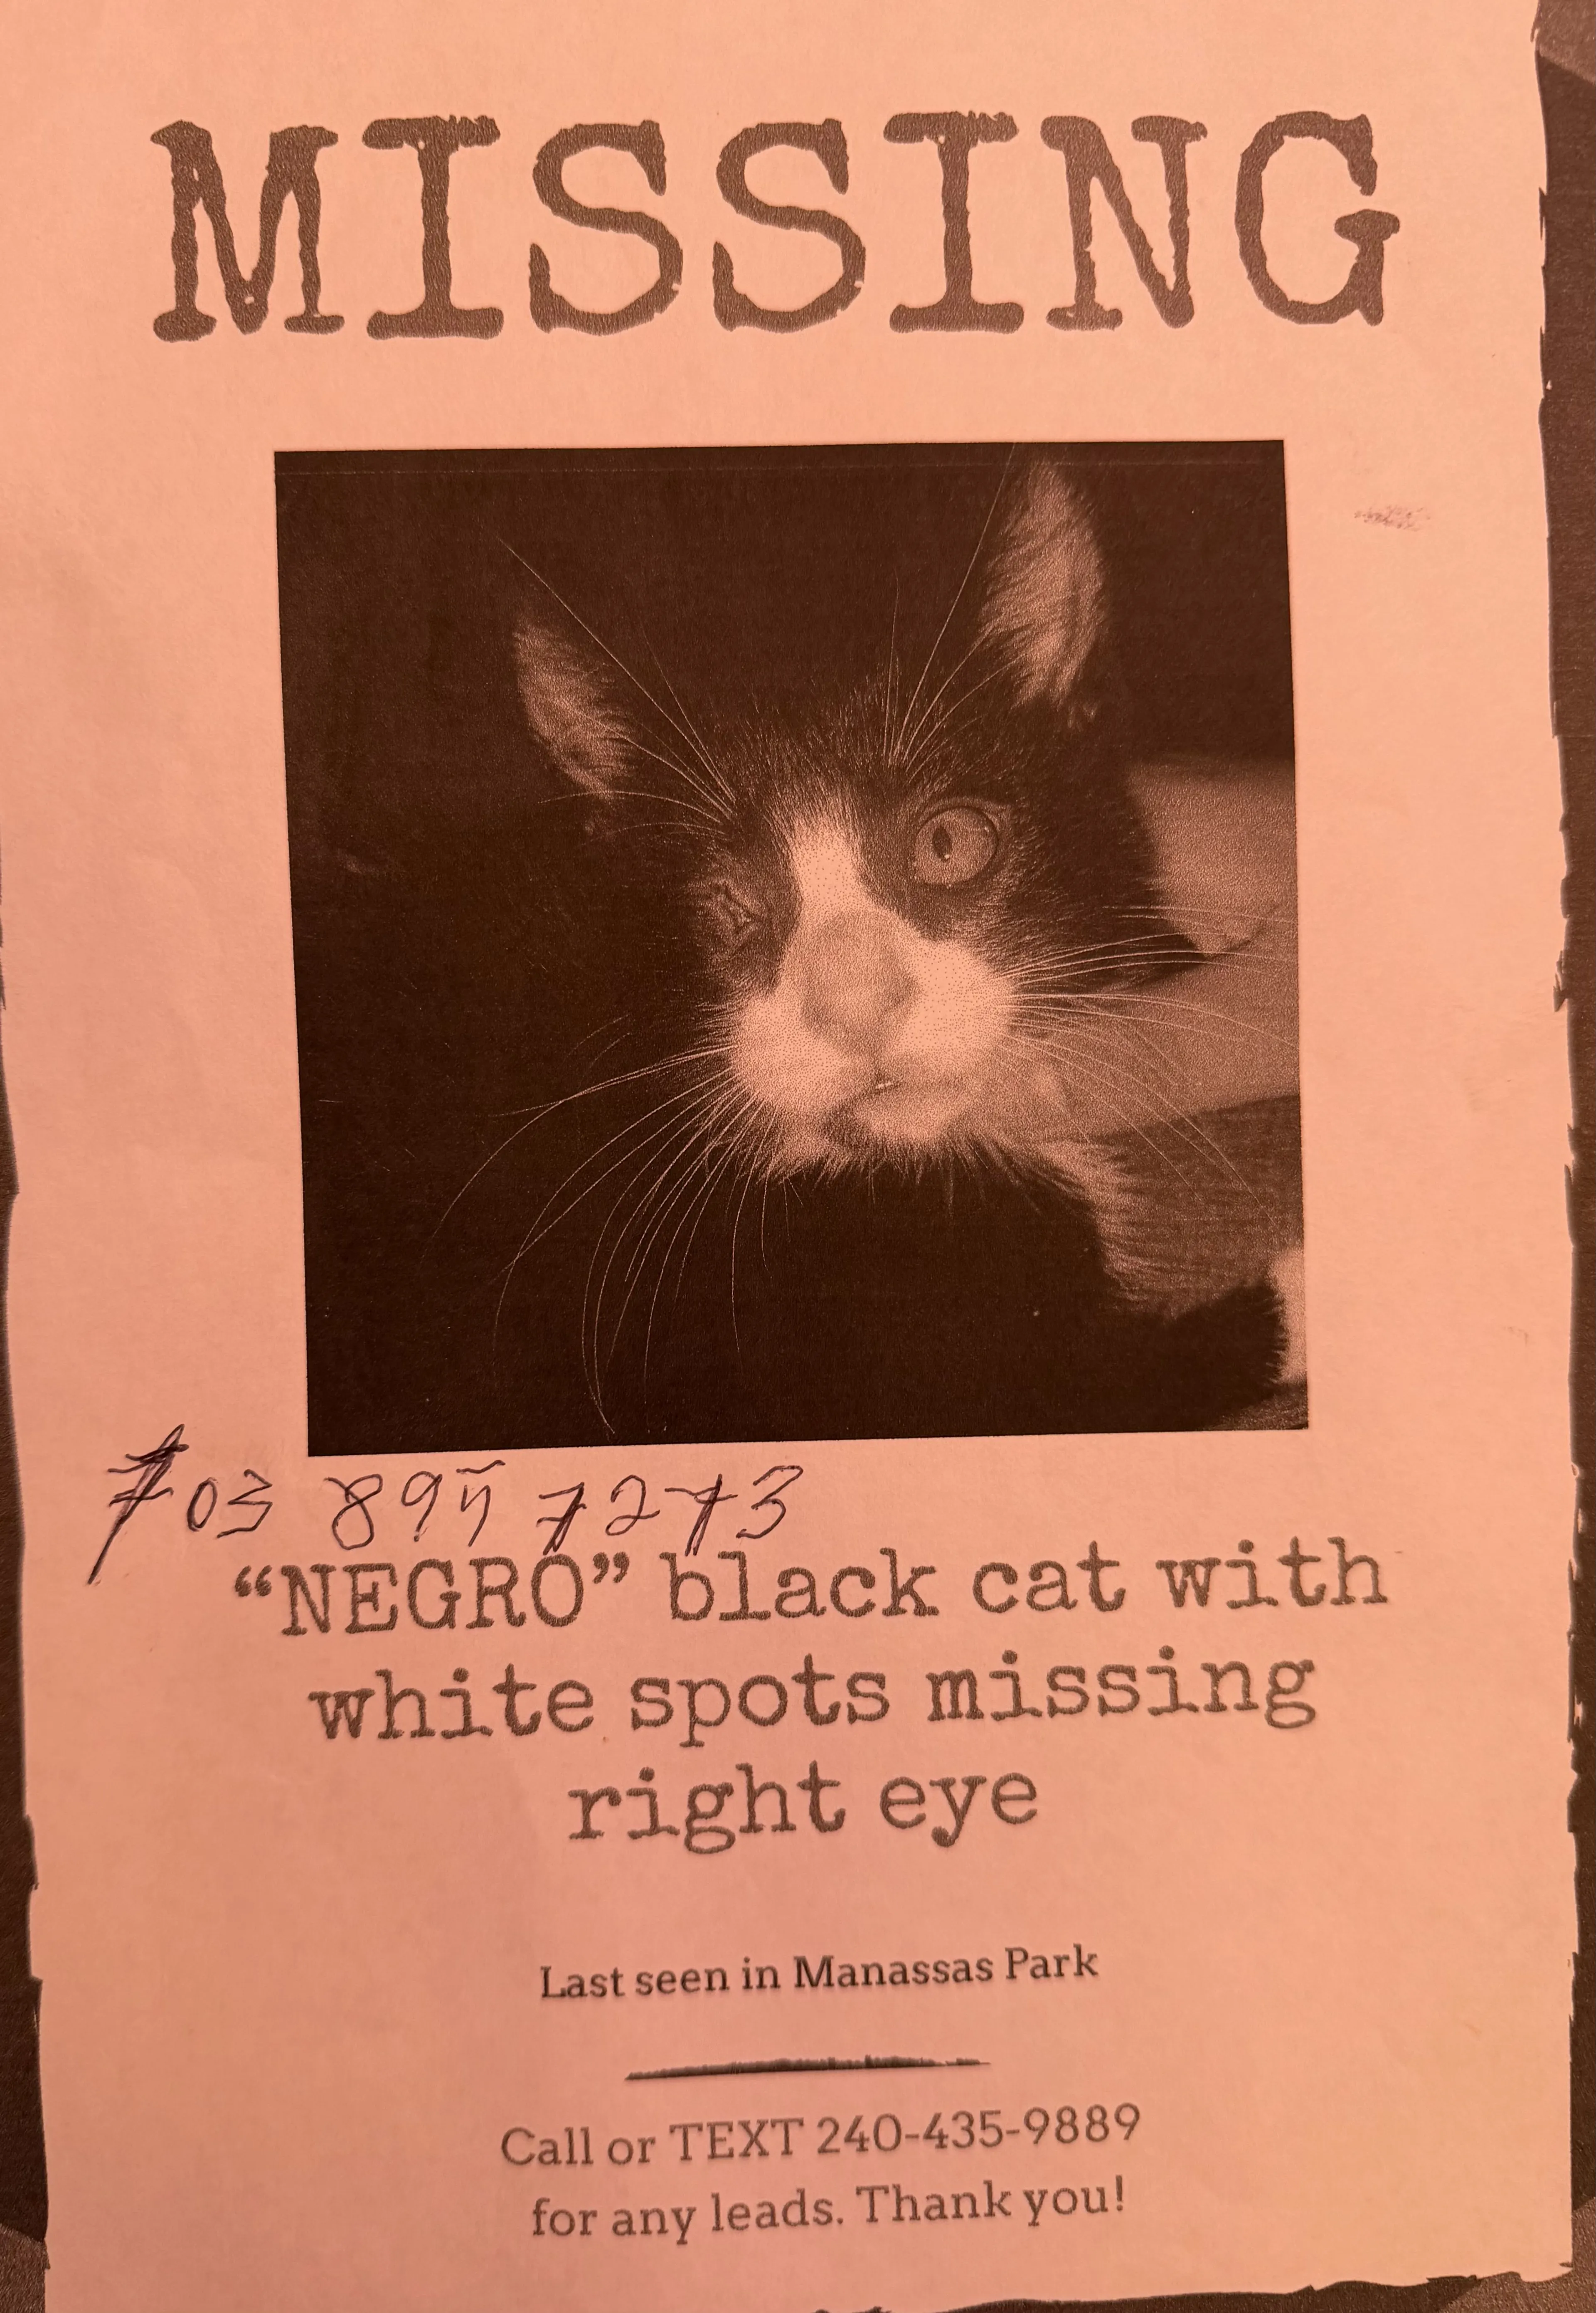 MISSING
703 895 7273
“NEGRO” black cat with
white spots missing
right eye
Last seen in Manassas Park
Call or TEXT 240-435-9889
for any leads. Thank you!